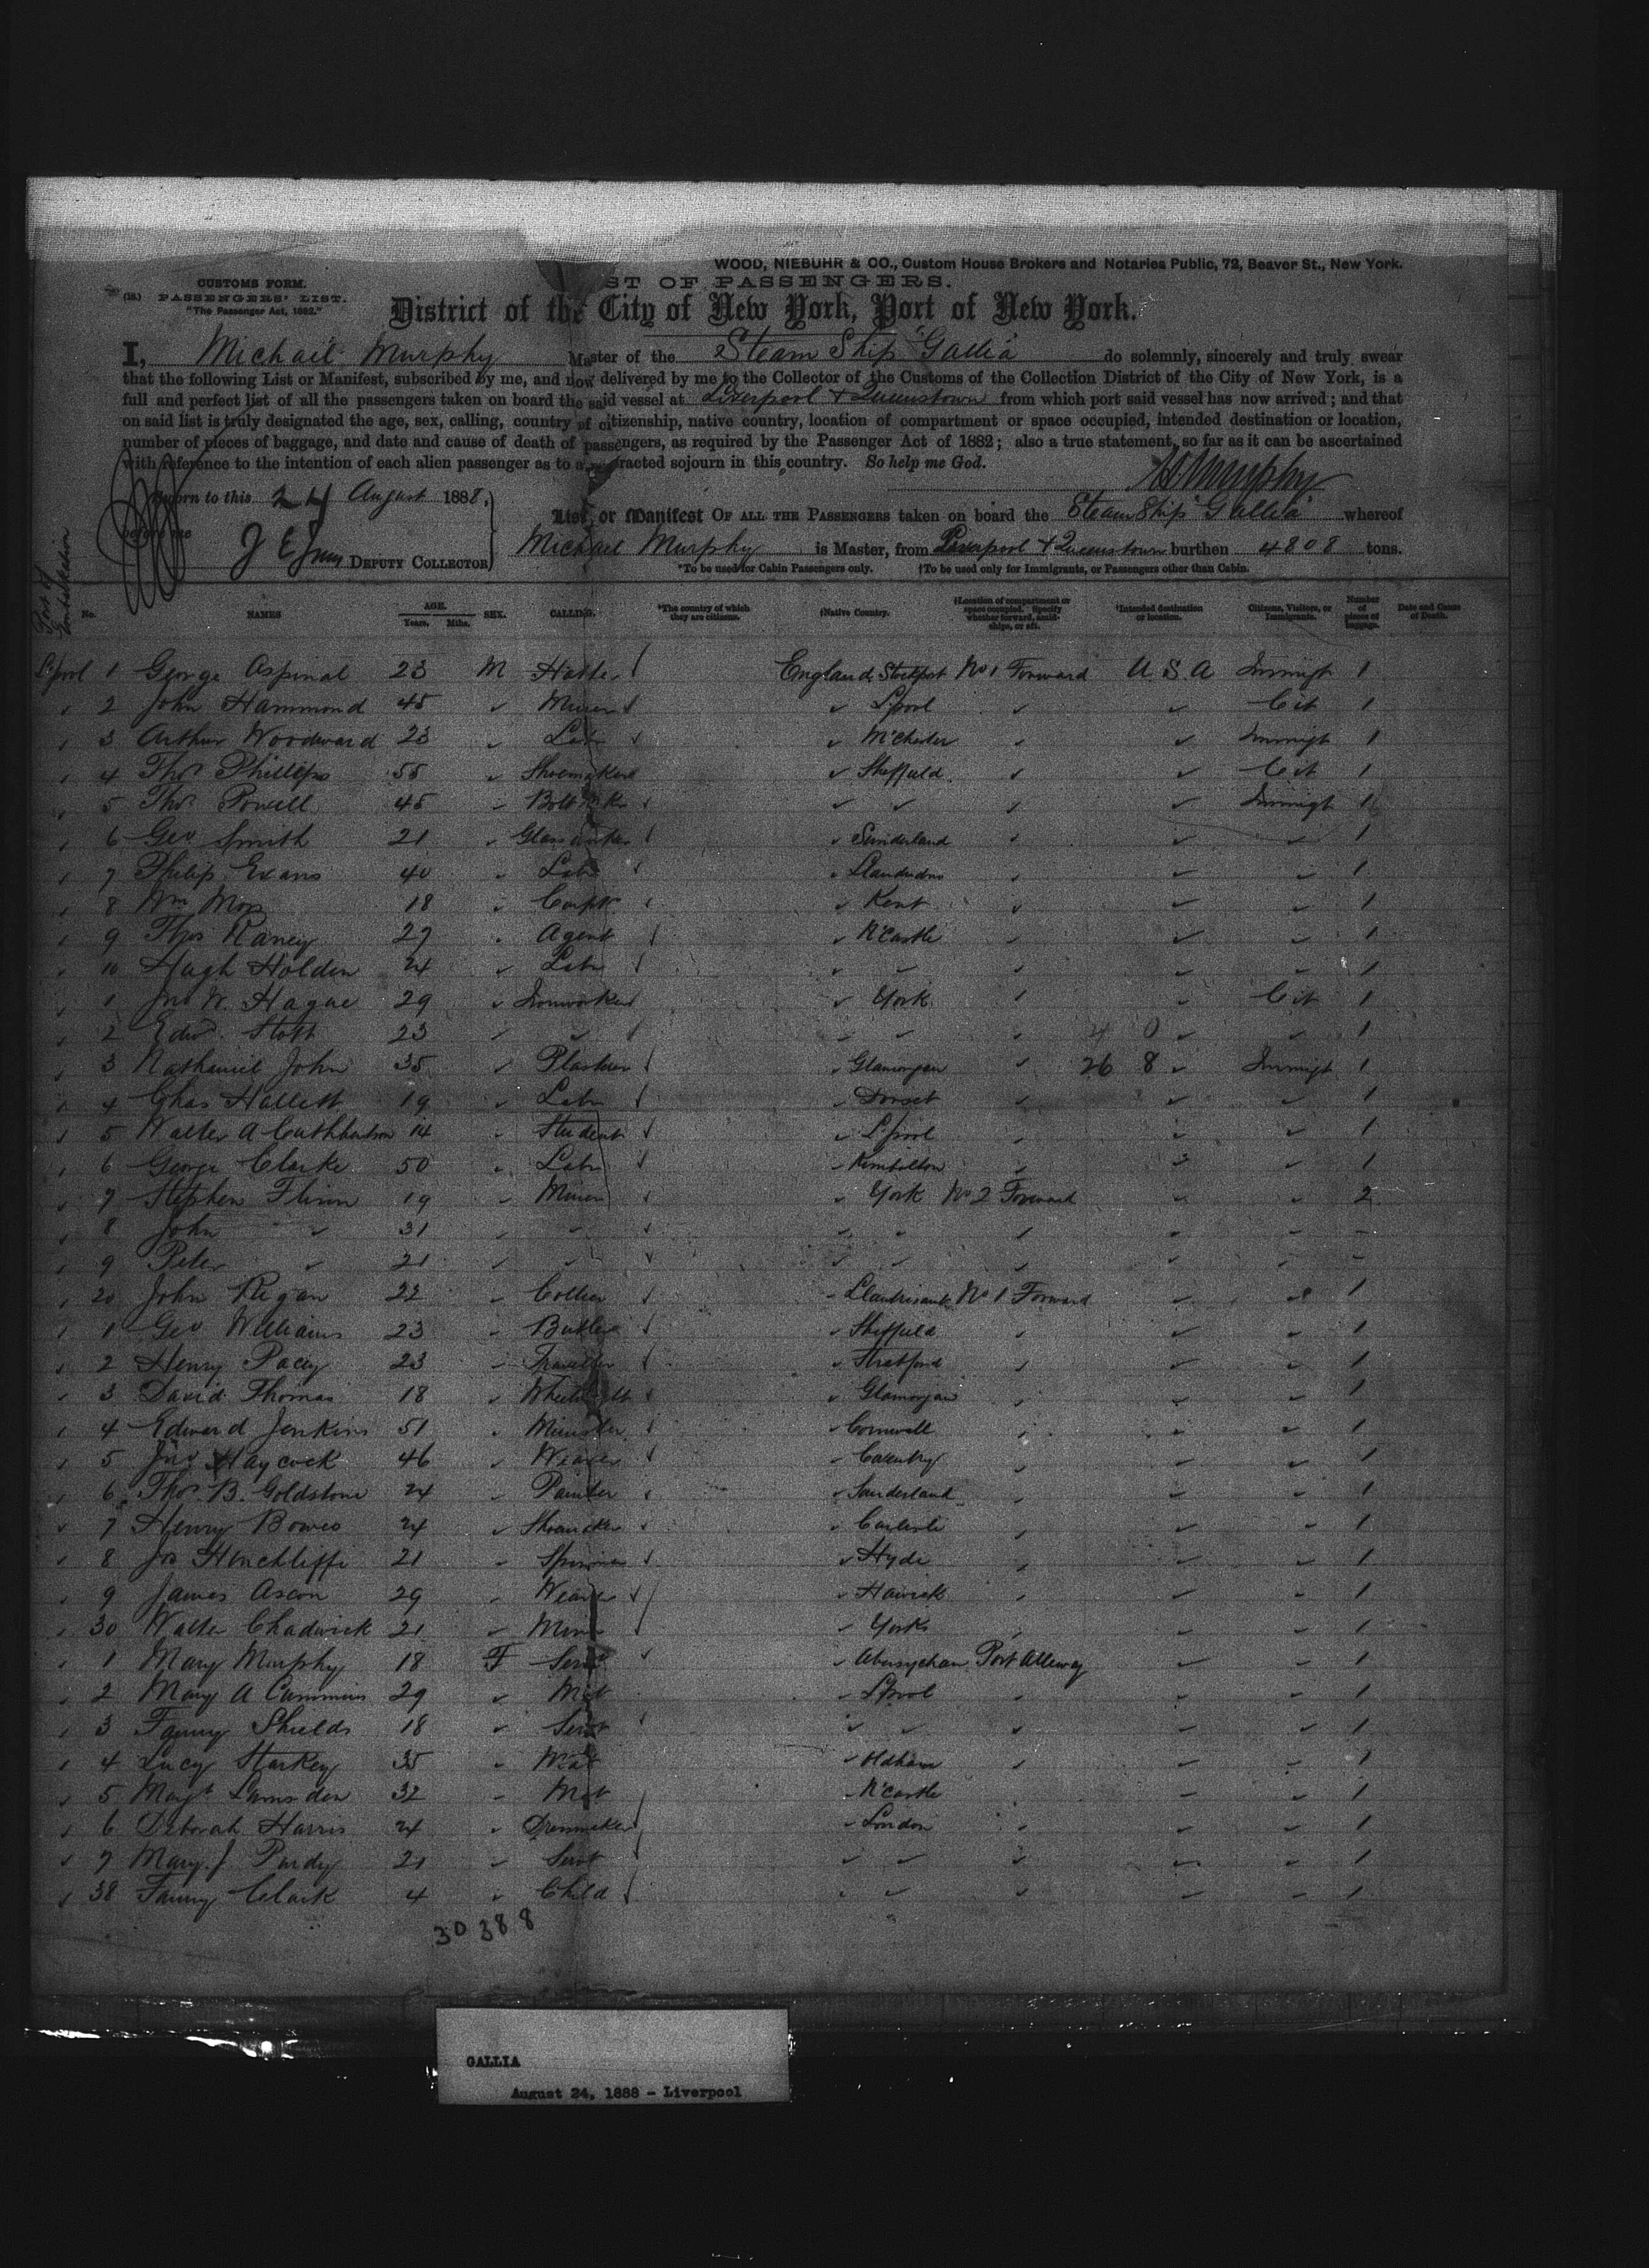 WOOD, NIEBUHR & CO., Custom House Brokers and Notaries Public, 72, Beaver St., New York.
CUSTOMS FORM.
(18.) PASSENGERS' LIST.
"The Passenger Act, 1882."
ST OF PASSENGERS.
District of the City of New York, Port of New York.
I, Michail Murphy Master of the Steam Ship "Gallia" do solemnly, sincerely and truly swear
that the following List or Manifest, subscribed by me, and now delivered by me to the Collector of the Customs of the Collection District of the City of New York, is a
full and perfect list of all the passengers taken on board the said vessel at Liverpool + Queenstown from which port said vessel has now arrived; and that
on said list is truly designated the age, sex, calling, country of citizenship, native country, location of compartment or space occupied, intended destination or location,
number of pieces of baggage, and date and cause of death of passengers, as required by the Passenger Act of 1882; also a true statement, so far as it can be ascertained
with reference to the intention of each alien passenger as to a protracted sojourn in this country. So help me God.
M Murphy
Sworn to this 24 August 1888,
before me
DEPUTY COLLECTOR
List or Manifest OF ALL THE PASSENGERS taken on board the Steam Ship "Gallia" whereof
Michael Murphy is Master, from Liverpool + Queenstown burthen 4808 tons.
*To be used for Cabin Passengers only. †To be used only for Immigrants, or Passengers other than Cabin.
Port of Embarkation No. NAMES AGE. Years. Mths. SEX. CALLING. *The country of which they are citizens. †Native Country. †Location of compartment or space occupied. Specify whether forward, amidships, or aft. †Intended destination or location. Citizens, Visitors, or Immigrants. Number of pieces of baggage. Date and Cause of Death.
L'pool 1 George Aspinal 23 M Hatter England Stockport No 1 Forward U.S.A Immigt 1
2 John Hammond 45 Miner L'pool Cit 1
3 Arthur Woodward 23 Labr M'Chester Immigt 1
4 Thos Phillips 55 Shoemaker Sheffield Cit 1
5 Thos Powell 45 Immigt 1
6 Geo Smith 21 Sunderland 1
7 Philip Evans 40 Labr Llandudno 1
8 Wm Moss 18 Carptr Kent 1
9 Thos Raney 27 Agent N'Castle 1
10 Hugh Holden 24 Labr 1
1 Jno W. Hague 29 Ironworker York Cit 1
2 Edwd. Stott 23 1
3 Nathaniel John 35 Plasterer Glamorgan 26 8 Immigt 1
4 Chas Hallett 19 Labr Dorset 1
5 Walter A Cuthbertson 14 Student L'pool 1
6 George Clarke 50 Labr Kimbolton 1
7 Stephen Flinn 19 Miner York No 2 Forward 2
8 John 31
9 Peter 21
20 John Regan 22 Collier Llantrisant No 1 Forward 1
1 Geo Williams 23 Butler Sheffield 1
2 Henry Pacey 23 Traveller Stratford 1
3 David Thomas 18 Wheelwright Glamorgan 1
4 Edward Jenkins 51 Minister Cornwall 1
5 Jno Haycock 46 Weaver Coventry 1
6 Thos. B. Goldstone 24 Painter Sunderland 1
7 Henry Bowes 24 Shoemaker Carlisle 1
8 Jos Hinchliffe 21 Spinner Hyde 1
9 James Ascon 29 Weaver Hawick 1
30 Walter Chadwick 21 Miner Yorks 1
1 Mary Murphy 18 F Servt Abersychan Port Alleway 1
2 Mary A Cummins 29 Mat L'pool 1
3 Fanny Shields 18 Servt 1
4 Lucy Starkey 35 Oldham 1
5 Magt Lumsden 32 Mat N'Castle 1
6 Deborah Harris 24 Dressmaker London 1
7 Mary J Purdy 21 Servt 1
38 Fanny Clark 4 Child 1
30388
GALLIA
August 24, 1888 - Liverpool